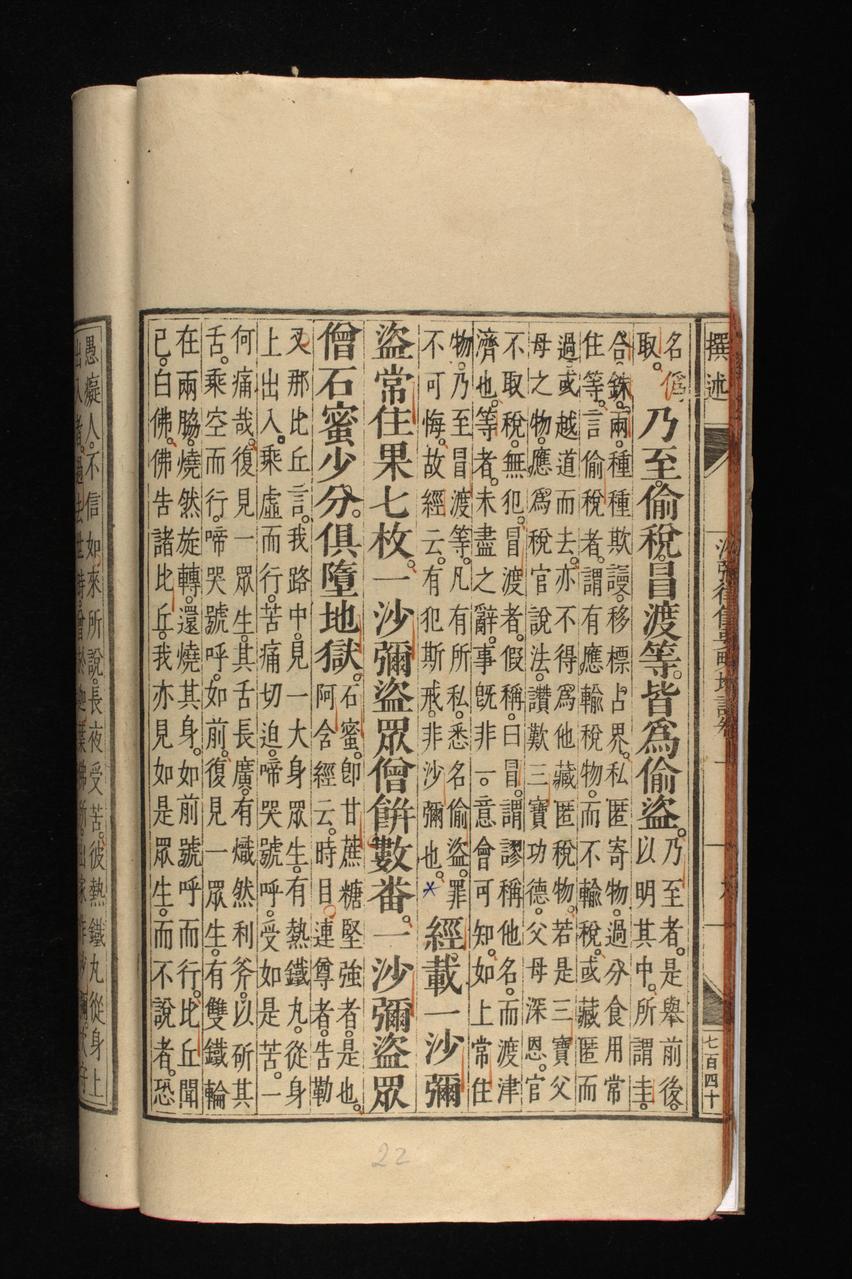 撰述
七百四十
名
取。
乃至偷稅。冒渡等。皆爲偷盜。
乃至者。是舉前後。
以明其中。所謂圭
合銖兩。種種欺謾。移標占界。私匿寄物。過分食用常
住等。言偷稅者。謂有應輸稅物。而不輸稅。或藏匿而
過。或越道而去。亦不得爲他藏匿稅物。若是三寶父
母之物。應爲稅官說法。讚歎三寶功德。父母深恩。官
不取稅。無犯。冒渡者。假稱曰冒。謂謬稱他名。而渡津
濟也。等者。未盡之辭。事旣非一。意會可知。如上常住
物。乃至冒渡等。凡有所私。悉名偷盜。罪
不可悔。故經云。有犯斯戒。非沙彌也。
經載一沙彌
盜常住果七枚。一沙彌盜眾僧餅數番。一沙彌盜眾
僧石蜜少分。俱墮地獄。
石蜜。卽甘蔗糖堅強者。是也。
阿含經云。時目連尊者。告勒
叉那比丘言。我路中。見一大身眾生。有熱鐵丸。從身
上出入。乘虛而行。苦痛切迫。啼哭號呼。受如是苦。一
何痛哉。復見一眾生。其舌長廣。有熾然利斧。以斫其
舌。乘空而行。啼哭號呼。如前。復見一眾生。有雙鐵輪
在兩脇。燒然旋轉。還燒其身。如前號呼而行。比丘聞
已。白佛。佛告諸比丘。我亦見如是眾生。而不說者。恐
愚癡人。不信如來所說。長夜受苦。彼熱鐵丸從身上
出入者。過去世時
22